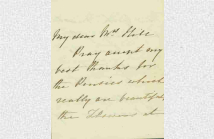 My dear Mrs
Pray accept my
best thanks for
the Pansies which
really are beautiful,
the